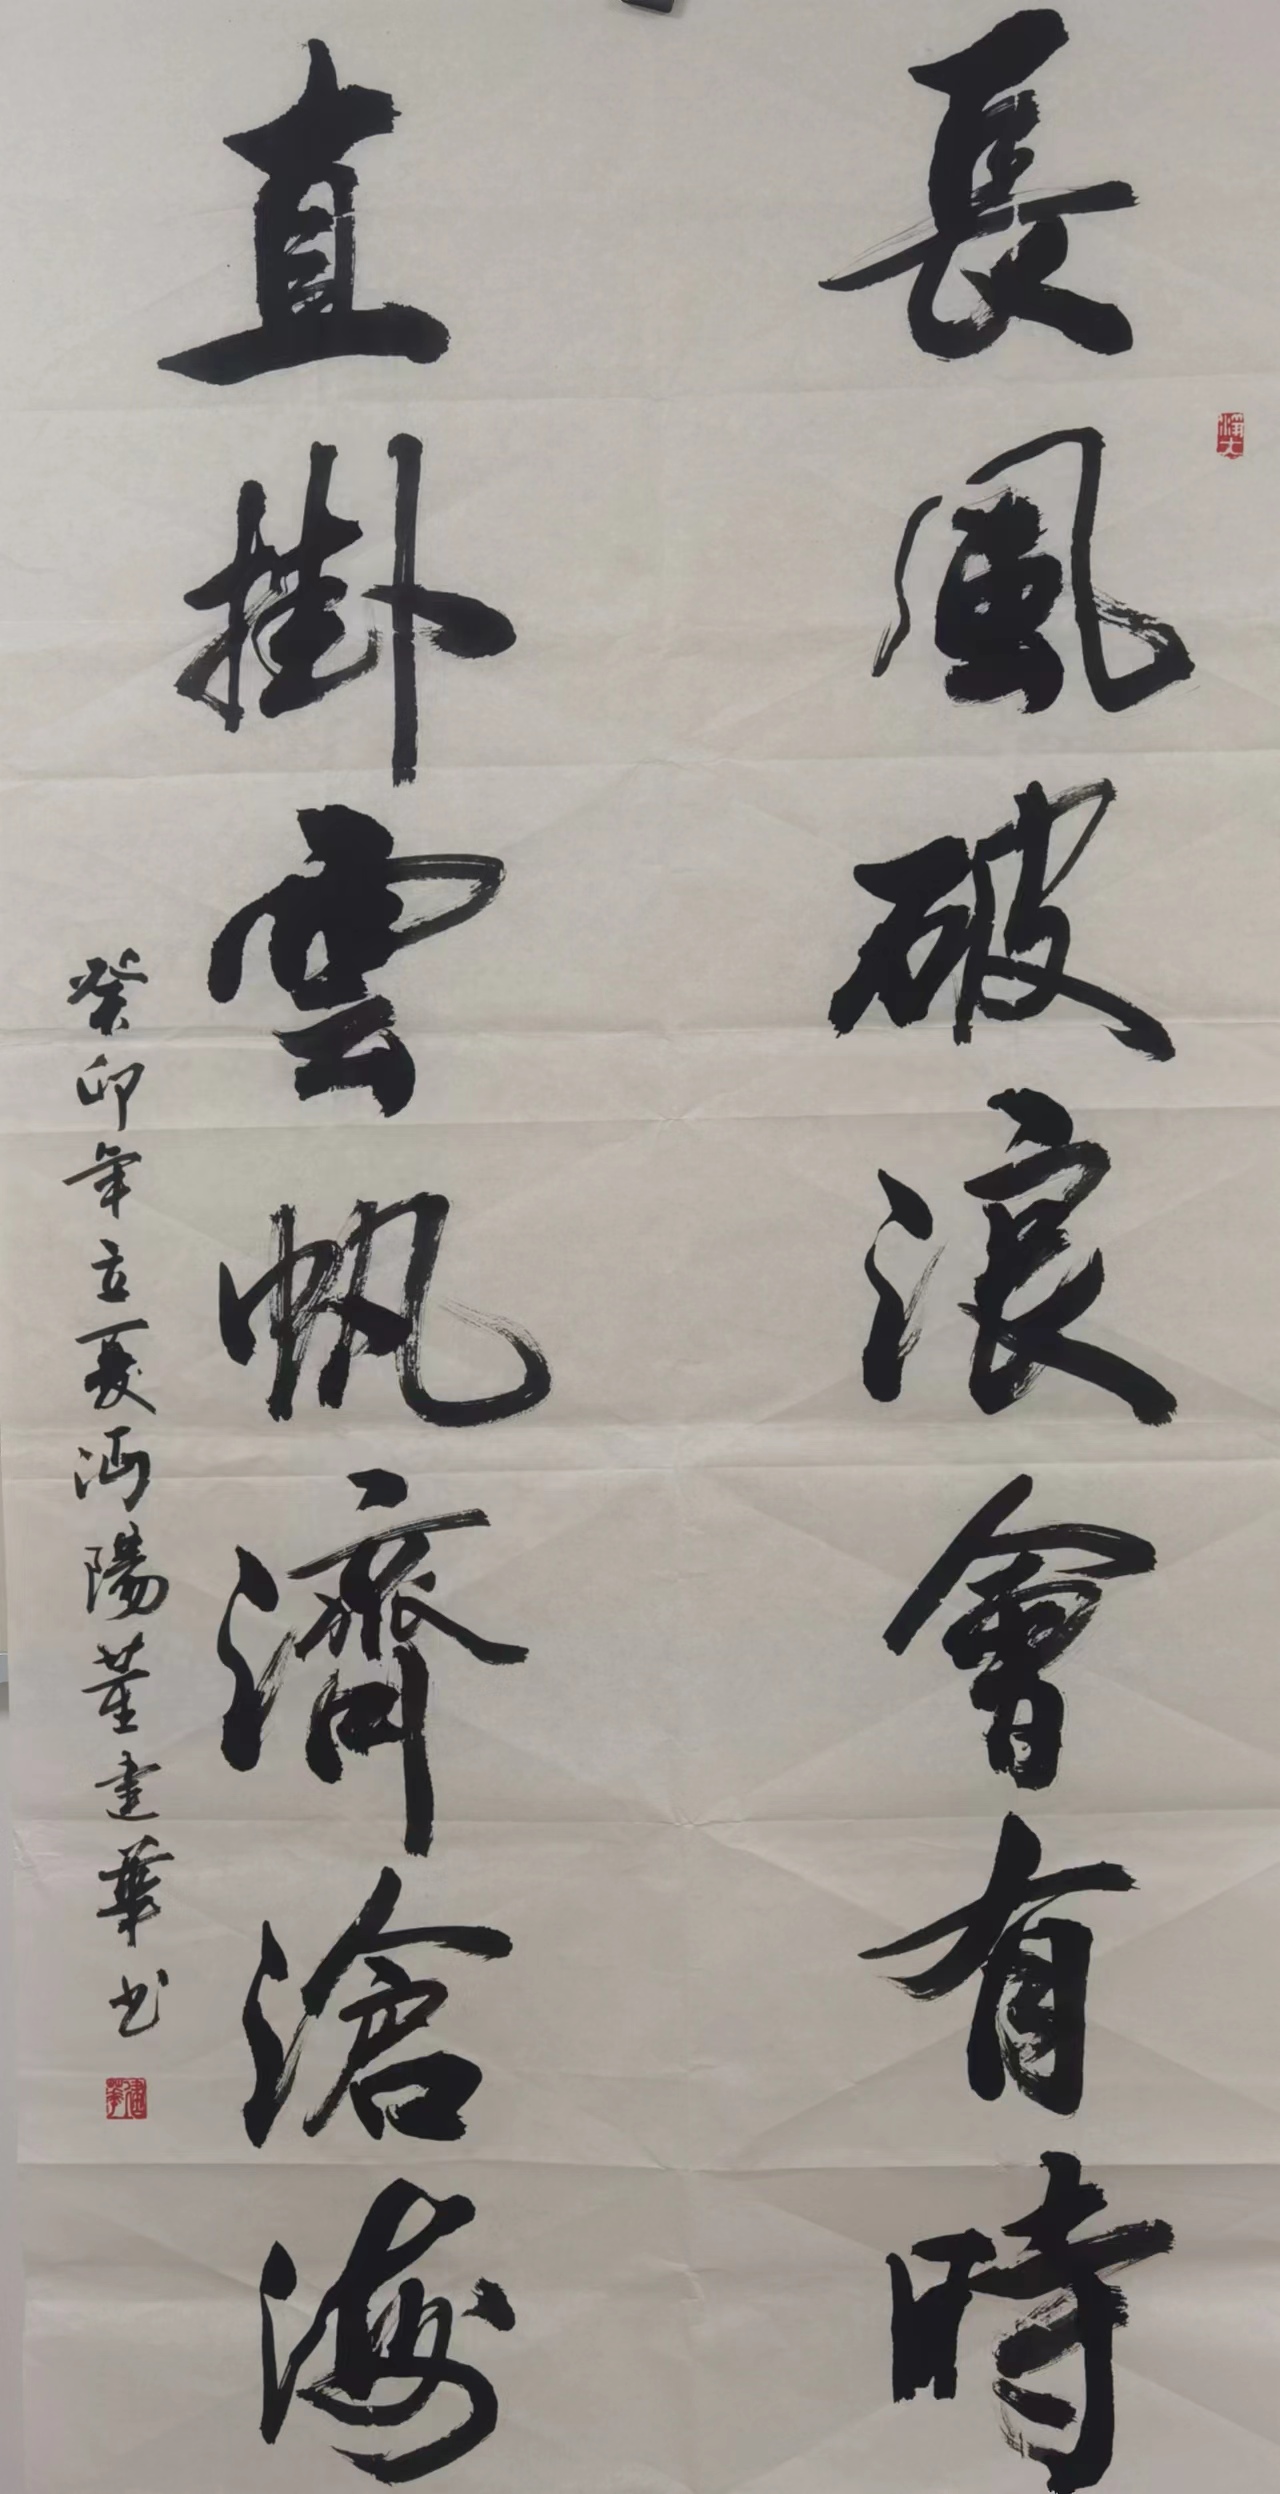 長風破浪會有時
直掛雲帆濟滄海
癸卯年立夏沔陽董建華书
建華